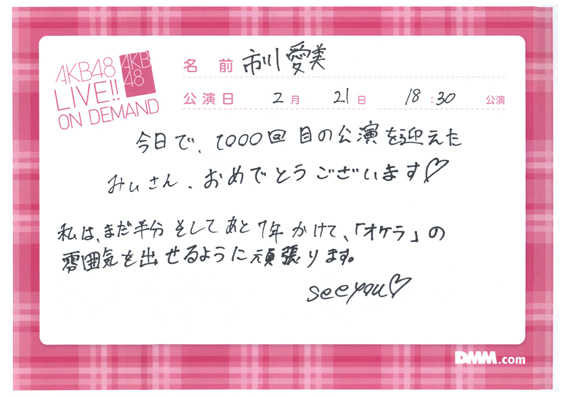 AKB48
LIVE!!
ON DEMAND
AKB
48
名 前 市川 愛美
公演日 2月 21日 18:30 公演
今日で、1000回目の公演を迎えた
みぃさん、おめでとうございます♡
私は、まだ半分 そして あと 7年 かけて、「オケラ」の
雰囲気を出せるように頑張ります。
see you♡
DMM.com